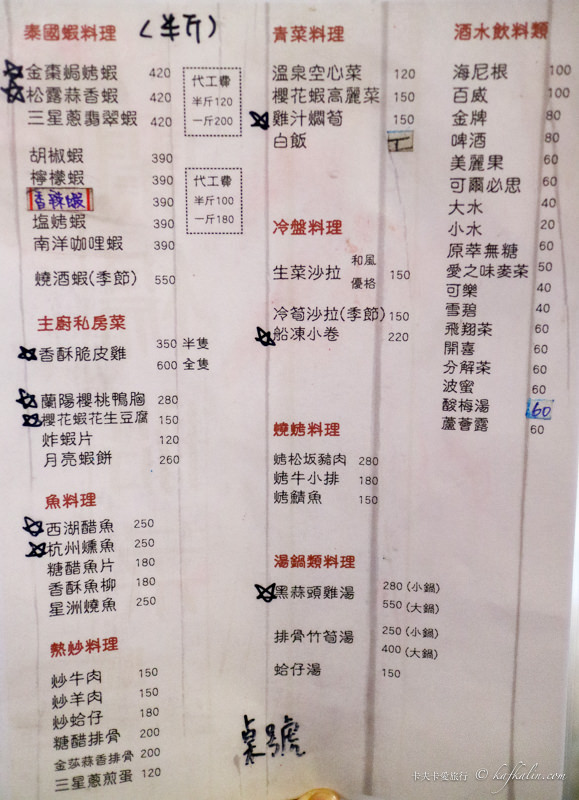 泰國蝦料理 (半斤)
金棗焗烤蝦 420
松露蒜香蝦 420
三星蔥翡翠蝦 420
代工費
半斤120
一斤200
胡椒蝦 390
檸檬蝦 390
香辣蝦 390
塩烤蝦 390
南洋咖哩蝦 390
代工費
半斤100
一斤180
燒酒蝦(季節) 550
主廚私房菜
香酥脆皮雞 350 半隻
600 全隻
蘭陽櫻桃鴨胸 280
櫻花蝦花生豆腐 150
炸蝦片 120
月亮蝦餅 260
魚料理
西湖醋魚 250
杭州燻魚 250
糖醋魚片 180
香酥魚柳 180
星洲燒魚 250
熱炒料理
炒牛肉 150
炒羊肉 150
炒蛤仔 180
糖醋排骨 200
金莎蒜香排骨 200
三星蔥煎蛋 120
青菜料理
溫泉空心菜 120
櫻花蝦高麗菜 150
雞汁燜筍 150
白飯
冷盤料理
生菜沙拉 和風 優格 150
冷筍沙拉(季節) 150
船凍小卷 220
燒烤料理
烤松坂豬肉 280
烤牛小排 180
烤鯖魚 150
湯鍋類料理
黑蒜頭雞湯 280 (小鍋)
550 (大鍋)
排骨竹筍湯 250 (小鍋)
400 (大鍋)
蛤仔湯 150
桌號
酒水飲料類
海尼根 100
百威 100
金牌 80
啤酒 80
美麗果 60
可爾必思 60
大水 40
小水 20
原萃無糖 60
愛之味麥茶 50
可樂 40
雪碧 40
飛翔茶 60
開喜 60
分解茶 60
波蜜 60
酸梅湯 60
蘆薈露 60
卡夫卡愛旅行 © kafkalin.com